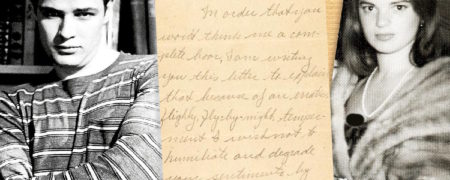 In order that you
won't think me a com-
plete boor, I am writing
you this letter to explain
that because of an erratic
flighty, fly-by-night temper-
ment I wish not to
humiliate and degrade
your sentiments by